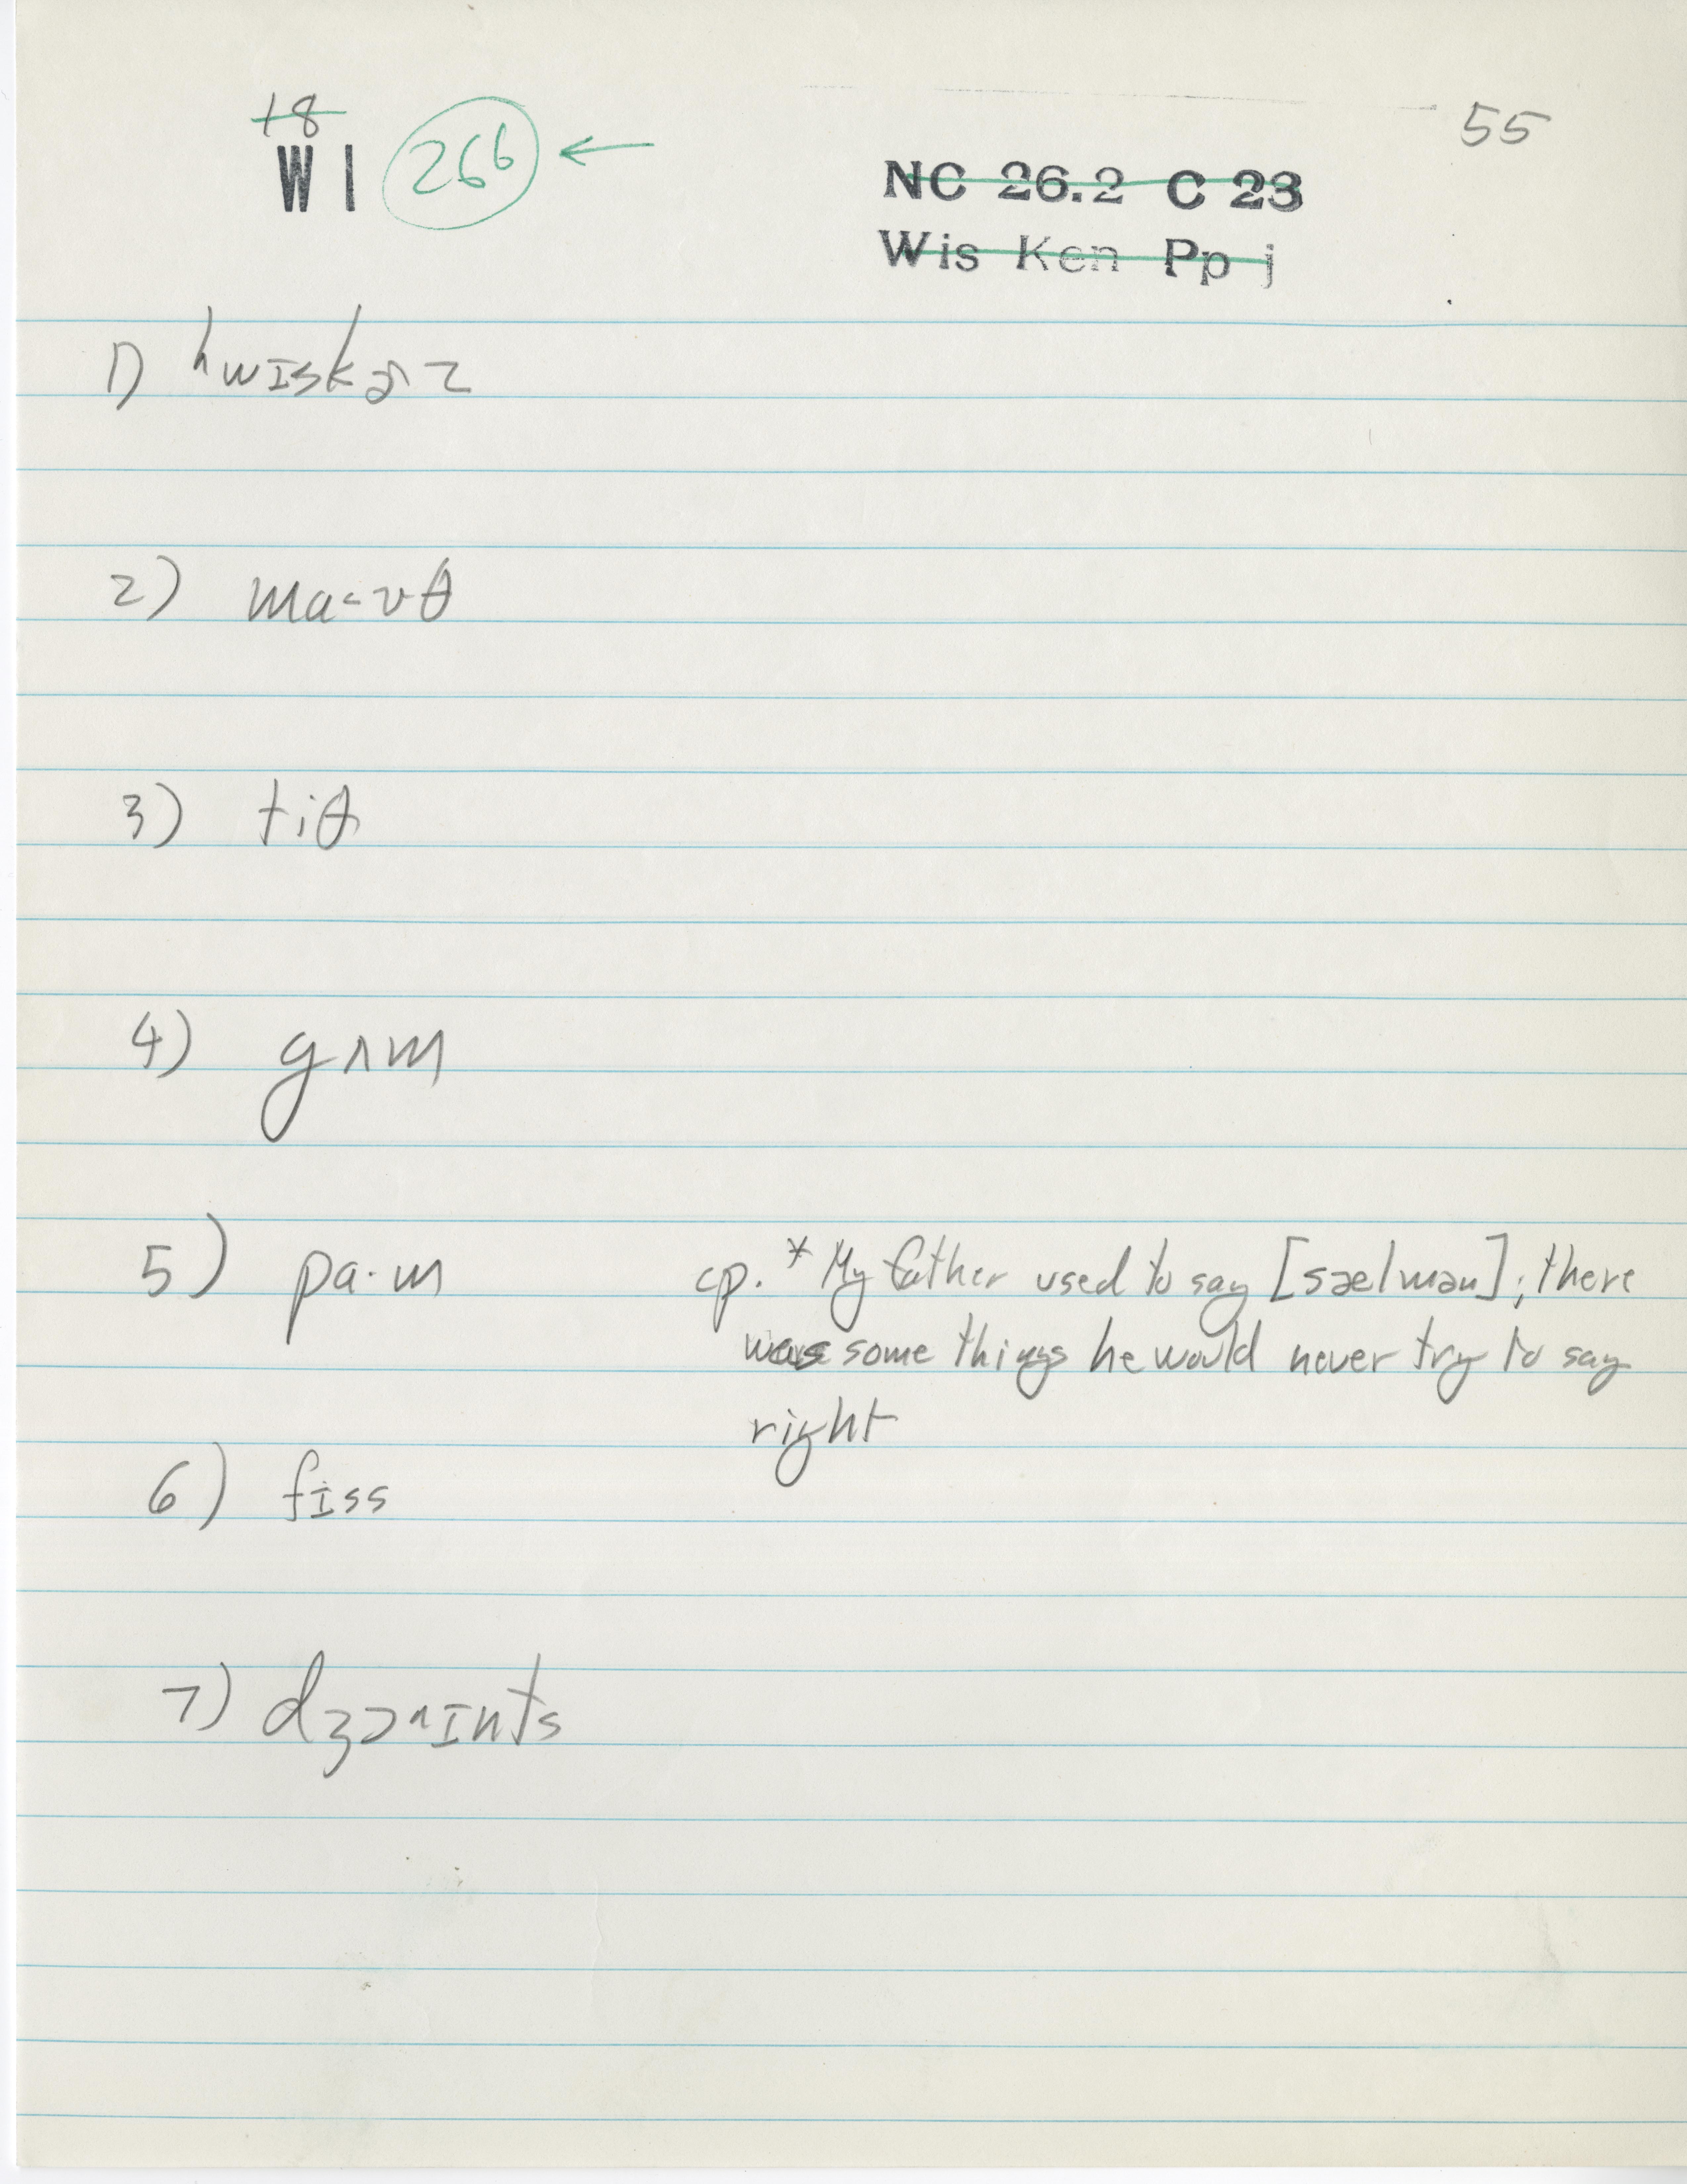 18
WI 26b ←
55
NC 26.2 C 23
Wis Ken Pp j
1) hwɪskɚz
2) ma·ʊθ
3) tiθ
4) gʌm
5) pa·m cp. *My father used to say [sælmən]; there
was some things he would never try to say
right
6) fɪss
7) dʒɔɪnts